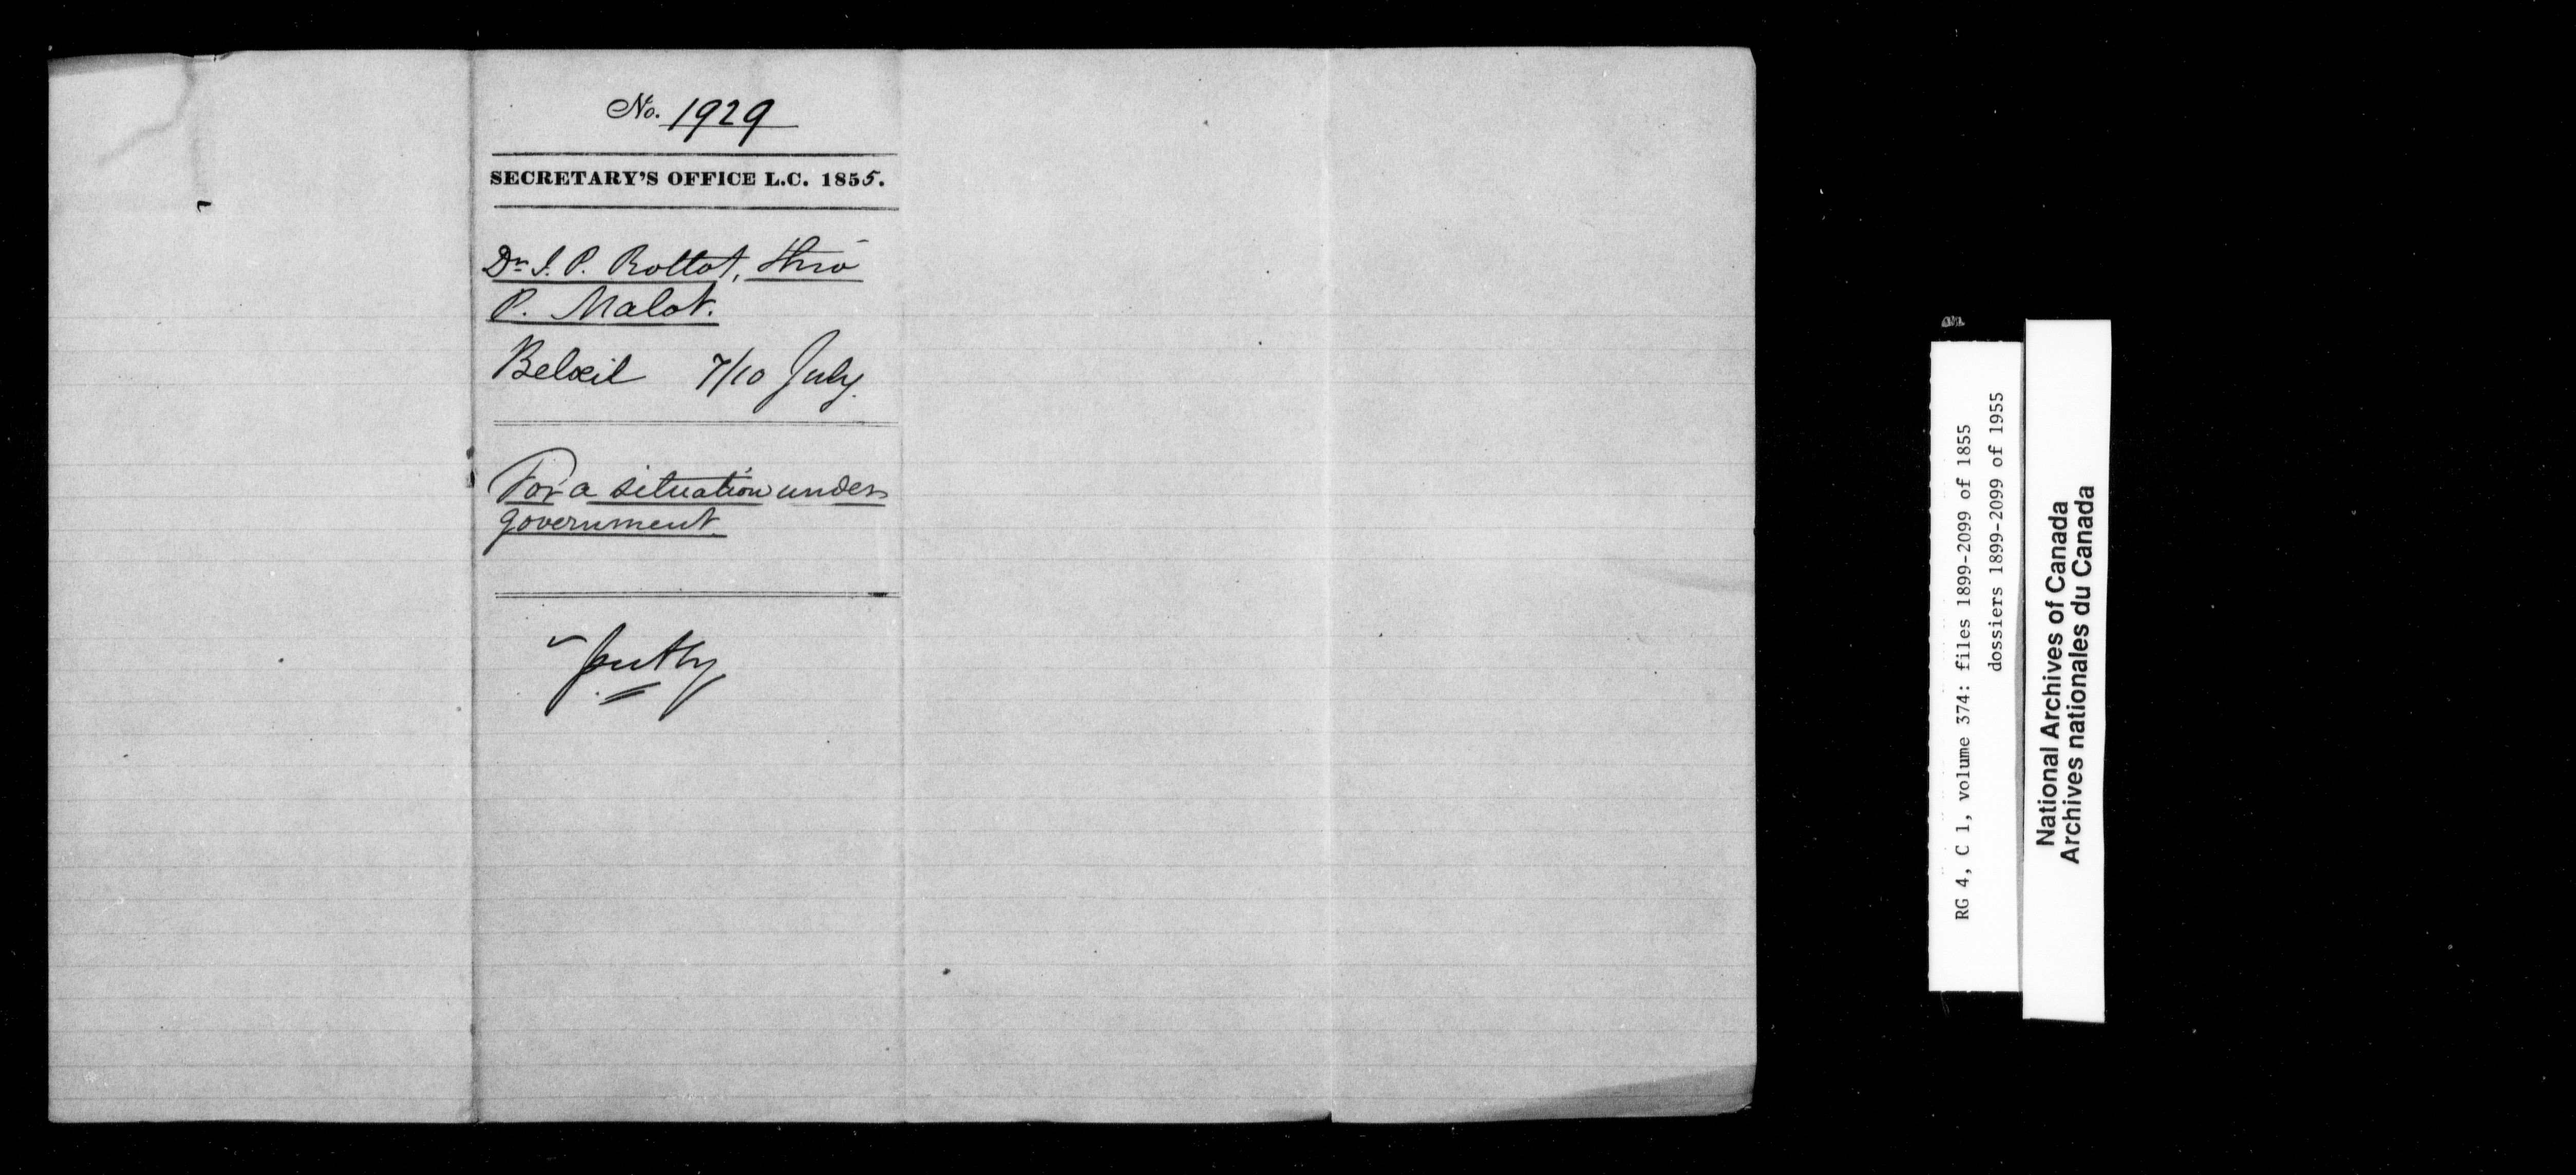 No. 1929
SECRETARY'S OFFICE L.C. 1855.
Dr J. P. Rottot, thro'
P. Malot.
Belœil 7/10 July.
For a situation under
government.
RG 4, C 1, volume 374: files 1899-2099 of 1855
dossiers 1899-2099 of 1955
National Archives of Canada
Archives nationales du Canada